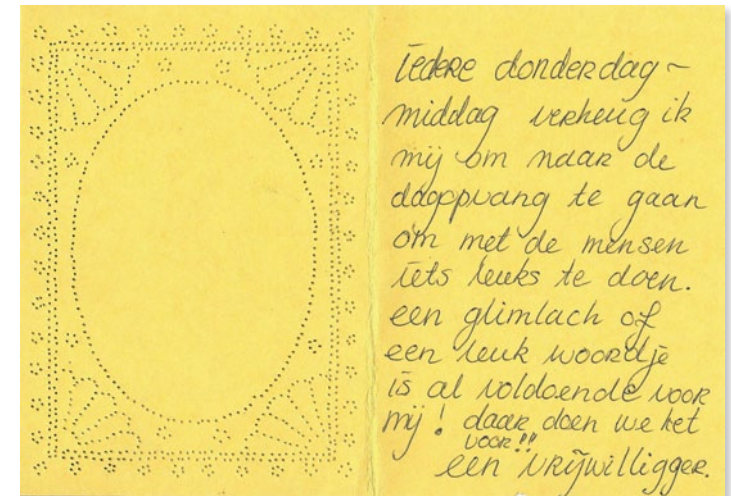 iedere donderdag~
middag verheug ik
mij om naar de
dagopvang te gaan
om met de mensen
iets leuks te doen.
een glimlach of
een leuk woordje
is al voldoende voor
mij! daar doen we het
voor!!
een vrijwilligger.